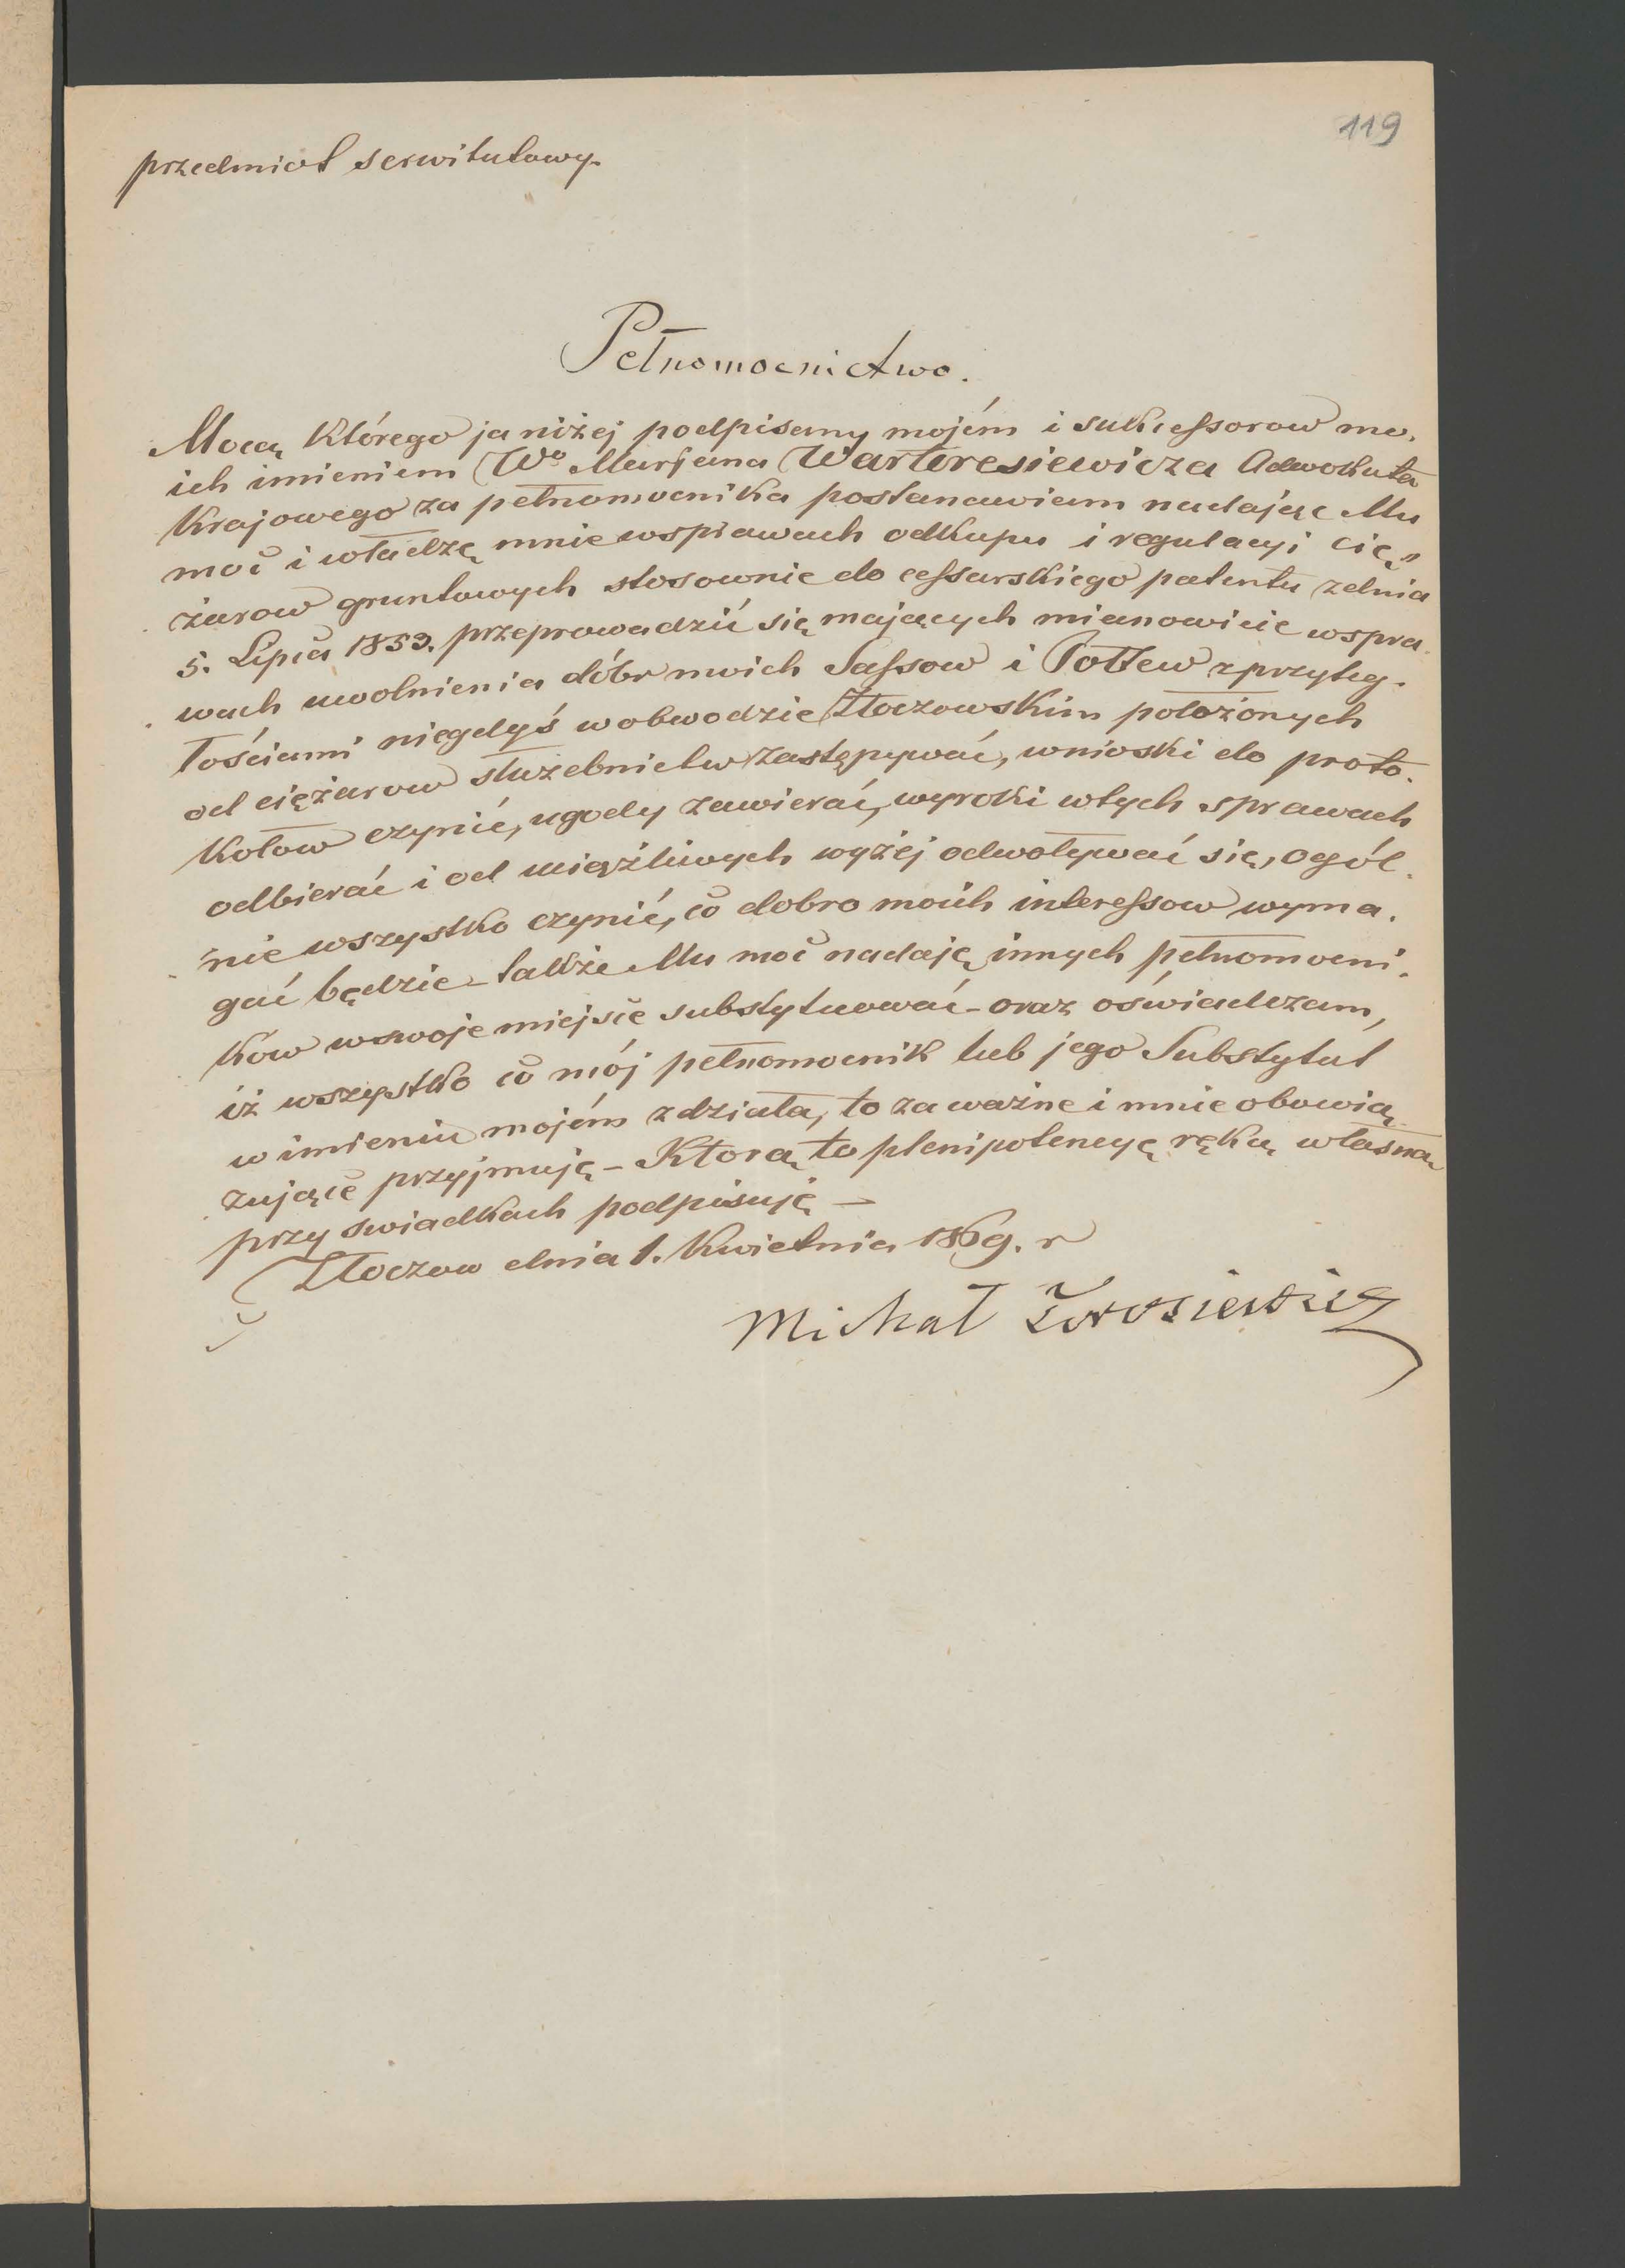 119
przedmiot serwitutowy.
Pełnomocnictwo.
Mocą którego ja niżej podpisany mojém i sukcessorow mo-
ich imieniem Wo Marjana Warteresiewicza Adwokata
Krajowego za pełnomocnika postanawiam nadając Mu
moc i władzę mnie wsprawach odkupu i regulacyi cię-
żarow gruntowych stosownie do cessarskiego patentu zdnia
5. Lipca 1853. przeprowadzić się mających mianowicie wspra-
wach uwolnienia dóbr moich Sassow i Połtew zprzyleg-
łościami niegdyś wobwodzie Złoczowskim położonych
od ciężarow służebnictw zastępywać, wnioski do proto-
kołow czynić, ugody zawierać, wyroki wtych sprawach
odbierać i od uciążliwych wyżej odwoływać się, ogól-
nie wszystko czynić, co dobro moich interessow wyma-
gać będzie - także Mu moc nadaję innych pełnomocni-
ków wswoje miejsce substytuować - oraz oświadczam,
iż wszystko co mój pełnomocnik lub jego Substytut
w imieniu mojém zdziała, to za ważne i mnie obowią-
zujące przyjmuję - Ktorą to plenipotencyę ręką własną
przy swiadkach podpisuję -
Złoczow dnia 1. Kwietnia 1869. r
Michał